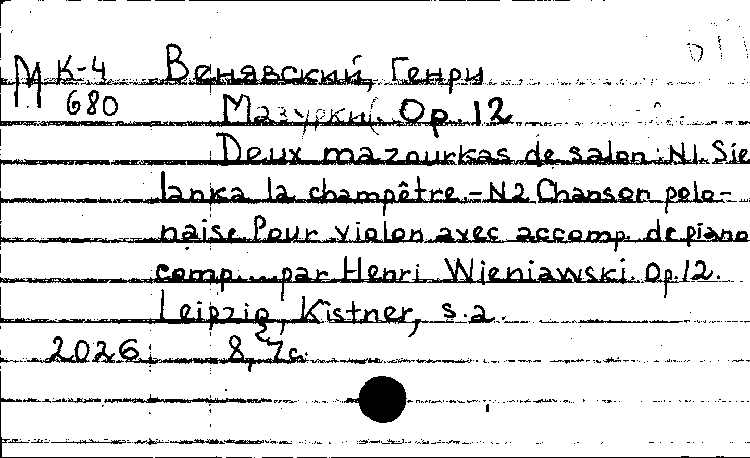 М К-4 Венявский, Генри
680 Мазурки. Op. 12
Deux mazourkas de salon: N1. Sie
lanka la champêtre.-N2 Chanson polo-
naise. Pour violon avec accomp. de piano
comp.... par Henri Wieniawski. Op. 12.
Leipzig, Kistner, s.a.
2026 8, 7c.